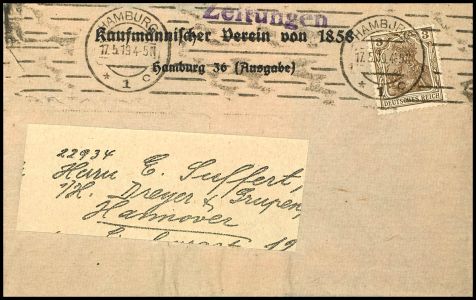 Zeitungen
Kaufmännischer Verein von 1858
Hamburg 36 (Ausgabe)
HAMBURG
17.5.19.4-5N
* 1 c
HAMBURG
17.5.19.4-5N
* 1 c
3 3
DEUTSCHES REICH
22934
Herrn E. Suffert,
Dreyer &
Hannover
19